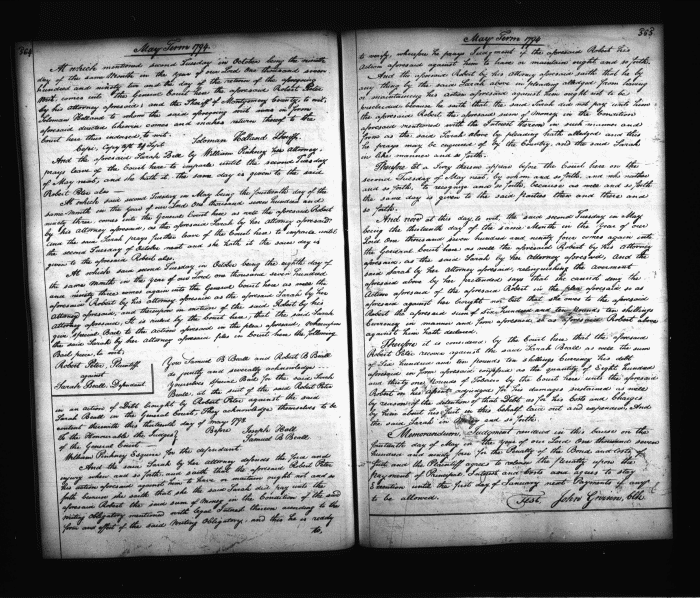 364
May Term 1794
At which mentioned second Tuesday in October being the ninth
day of the same Month in the year of our Lord One thousand seven
hundred and ninety two and the day of the return of the aforegoing
Writ, comes into the General Court here the aforesaid Robert Peter
by his attorney aforesaid; and the Sheriff of Montgomery County to wit;
Solomon Holland to whom the said aforegoing writ was in form
aforesaid directed likewise comes and makes return thereof to the
Court here thus endorsed to wit.
Solomon Holland Sheriff.
And the aforesaid Sarah Beall by William Pinkney her Attorney
prays leave of the Court here to imparle until the second Tuesday
of May next, and she hath it, the same day is given to the said
Robert Peter also
At which said second Tuesday in May being the fourteenth day of the
same Month in the year of our Lord One thousand seven hundred and
ninety three, comes into the General Court here as well the aforesaid Robert
by his Attorney aforesaid, as the aforesaid Sarah by her Attorney aforesaid
and the said Sarah prays further leave of the Court here to imparle until
the second Tuesday of October next and she hath it the same day is
given to the aforesaid Robert also.
At which said second Tuesday in October being the eighth day of
the same Month in the year of our Lord One thousand seven hundred
and ninety three comes again into the General Court here as well the
aforesaid Robert by his attorney aforesaid as the aforesaid Sarah by her
Attorney aforesaid, and thereupon on motion of the said Robert by his
Attorney aforesaid, It is ruled by the Court here, that the said Sarah
give Special Bail to the action aforesaid in the plea aforesaid, whereupon
the said Sarah by her attorney aforesaid files in Court here the following
Bail piece, to wit;
Robert Peter, Plaintiff
against
Sarah Beall Defendant
You Samuel B Beall and Robert B Beall
do jointly and severally acknowledge
yourselves Special Bail for the said Sarah
Beall, at the suit of the said Robert Peter
in an action of Debt brought by Robert Peter against the said
Sarah Beall in the General Court, They acknowledge themselves to be
content therewith this thirteenth day of May 1793.
To the Honourable the Judges
of the General Court
Before Joseph Hall
Samuel B Beall
William Pinkney Esquire for the defendant
And the said Sarah by her Attorney defends the force and
injury when and so forth, and saith that the aforesaid Robert Peter
his action aforesaid against him to have or maintain ought not and so
forth because she saith that she the said Sarah did pay unto the
aforesaid Robert the said sum of Money in the Condition of the said
writing Obligatory mentioned with legal Interest thereon according to the
form and effect of the said Writing Obligatory; and this he is ready
to,
May Term 1794
363
to verify, wherefore he prays Judgment if the aforesaid Robert his
Action aforesaid against him to have or maintain ought and so forth.
And the aforesaid Robert by his Attorney aforesaid saith that he by
any thing by the said Sarah above in pleading alledged from having
or maintaining his action aforesaid against him ought not to be
precluded because he saith that the said Sarah did not pay unto him
the aforesaid Robert the aforesaid sum of Money in the Condition
aforesaid mentioned with the Interest thereon in such manner and
form as the said Sarah above by pleading hath alledged and this
he prays may be enquired of by the Country, and the said Sarah
in like manner and so forth.
Therefore let a Jury thereon appear before the Court here on the
second Tuesday of May next, by whom and so forth, and who neither
and so forth, to recognize and so forth, because as well and so forth
the same day is given to the said parties then and there and
so forth.
And now at this day to wit, the said second Tuesday in May
being the thirteenth day of the same Month in the Year of our
Lord One thousand seven hundred and ninety four comes again into
the General Court here as well the aforesaid Robert by his Attorney
aforesaid as the said Sarah by her Attorney aforesaid, And the
said Sarah by her Attorney aforesaid relinquishing the averment
aforesaid above by her pretended say that she cannot gainsay the
Action aforesaid of the aforesaid Robert in the plea aforesaid so as
aforesaid against her brought nor but that she owes to the aforesaid
Robert the aforesaid sum of Six hundred and ten pounds ten shillings
Currency in manner and form aforesaid as the aforesaid Robert above
against him hath declared.
Therefore it is considered by the Court here that the aforesaid
Robert Peter recover against the said Sarah Beall as well the sum
of Six hundred and ten pounds ten shillings Currency his debt
aforesaid in form aforesaid as the quantity of Eight hundred
and thirty one Pounds of Tobacco by the Court here unto the aforesaid
Robert on his assent adjudged for his damages sustained as well
by reason of the detention of that Debt as for his Costs and Charges
by him about his suit in this behalf laid out and expended, And
the said Sarah in Mercy and so forth.
Memorandum, Judgment rendered in this cause on the
fourteenth day of May in the year of our Lord One thousand seven
hundred and ninety four for the Penalty of the Bond and Costs of
suit and the Plaintiff agrees to release the Penalty upon the
payment of Principal, Interest and Costs and agrees to stay
Execution until the first day of January next. Payments if any
to be allowed.
Test John Gwinn, Clk